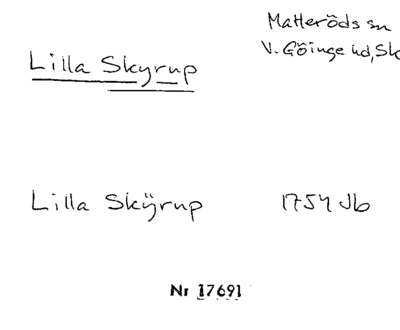 Matteröds sn
V. Göinge hd, Sk
Lilla Skyrup
Lilla Skÿrup 1754 Jb
Nr 17691